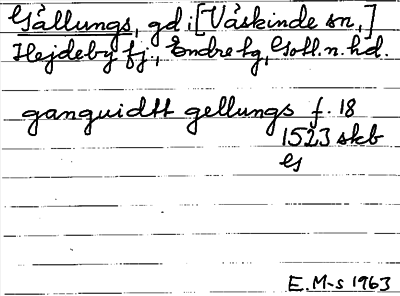 Gållungs, gd i [Väskinde sn,]
Hejdeby fj., Endre tg, Gotl. n. hd.
ganguidtt gellungs f. 18
1523 skb
GS
E. M-s 1963